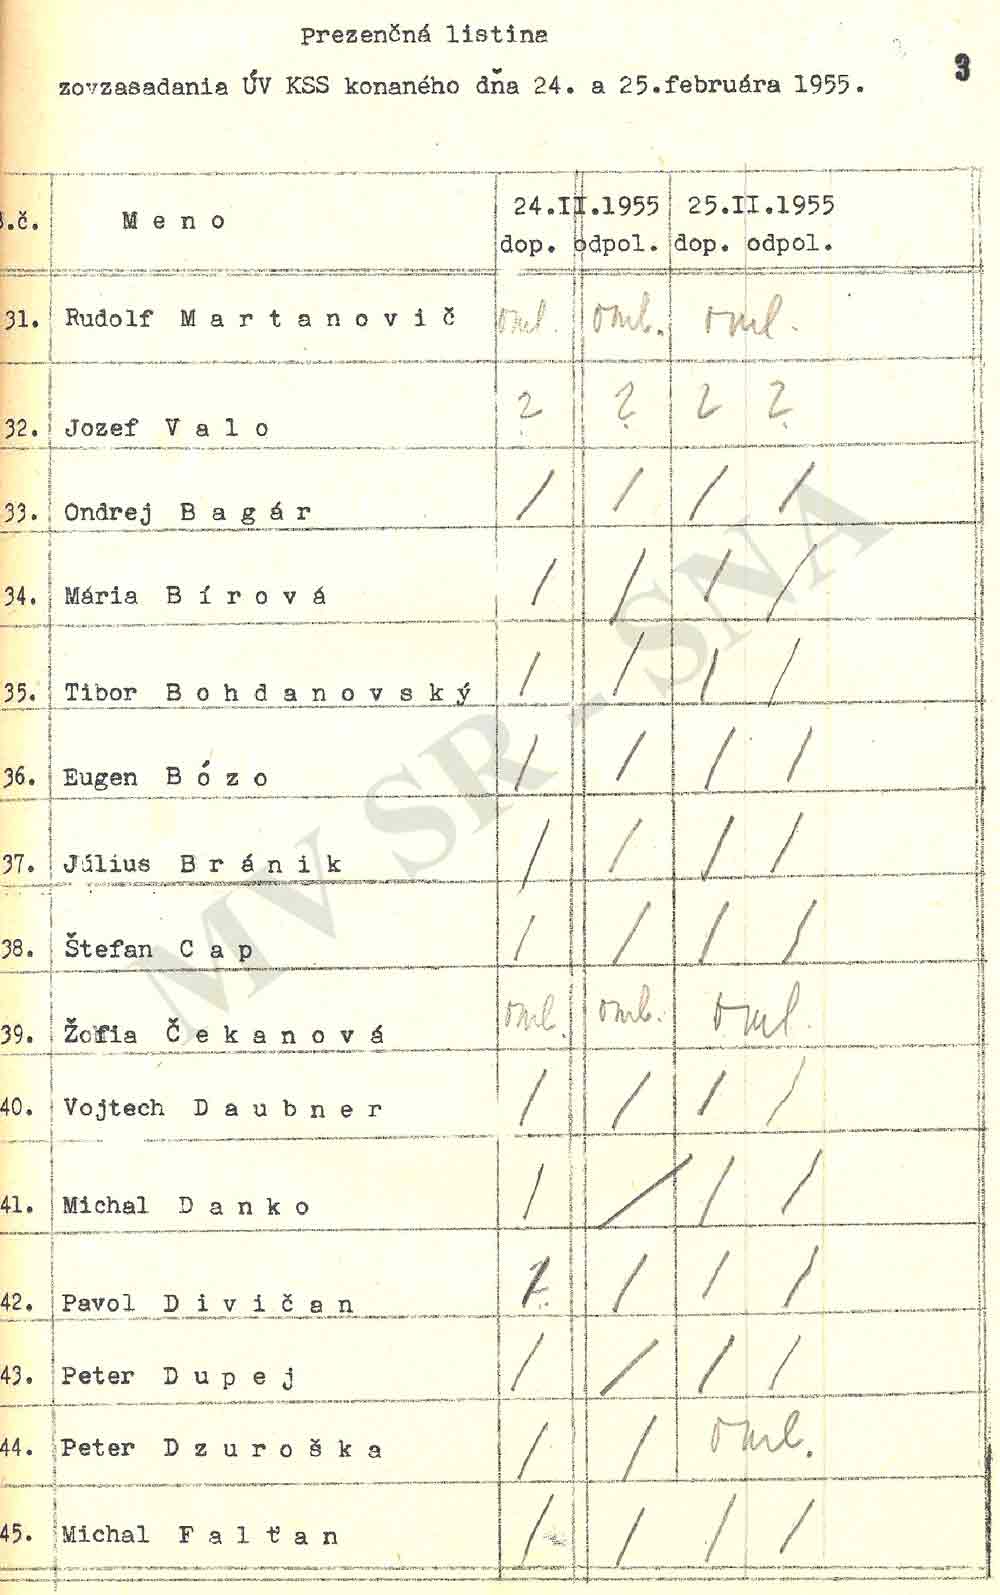 Prezenčná listina
zo zasadania ÚV KSS konaného dňa 24. a 25.februára 1955.
3
.č. M e n o 24.II.1955 25.II.1955
dop. odpol. dop. odpol.
31. Rudolf M a r t a n o v i č oml. oml. oml.
32. Jozef V a l o ? ? ? ?
33. Ondrej B a g á r / / / /
34. Mária B í r o v á / / / /
35. Tibor B o h d a n o v s k ý / / / /
36. Eugen B ó z o / / / /
37. Július B r á n i k / / / /
38. Štefan C a p / / / /
39. Žofia Č e k a n o v á oml. oml. oml.
40. Vojtech D a u b n e r / / / /
41. Michal D a n k o / / / /
42. Pavol D i v i č a n / / / /
43. Peter D u p e j / / / /
44. Peter D z u r o š k a / / oml.
45. Michal F a l ť a n / / / /
MV SR - SNA